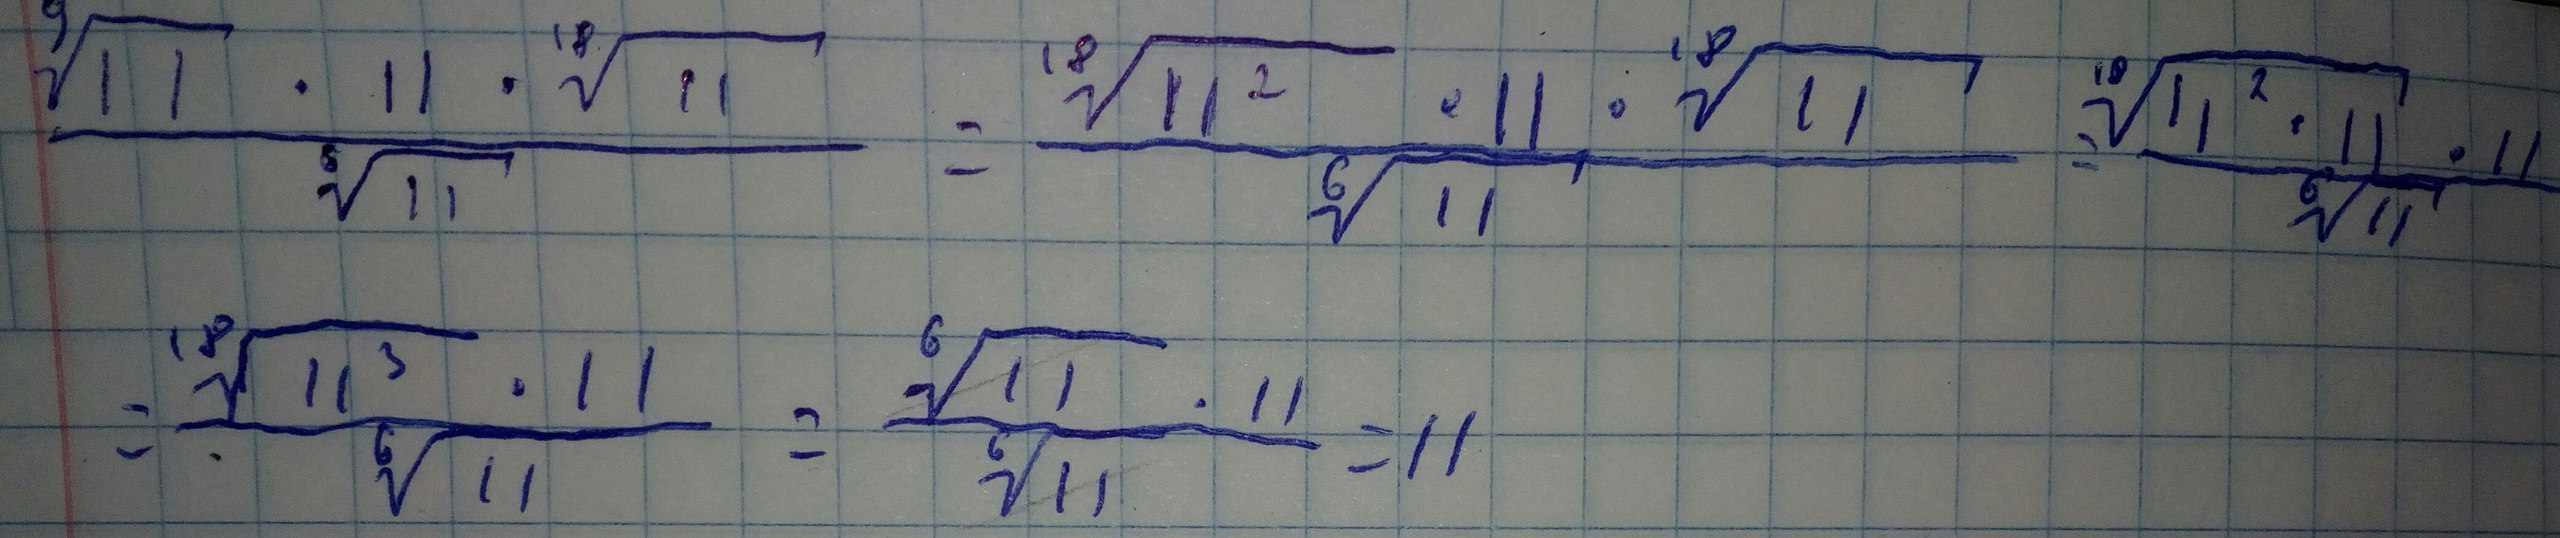 \frac{\sqrt[9]{11} \cdot 11 \cdot \sqrt[18]{11}}{\sqrt[6]{11}} = \frac{\sqrt[18]{11^2} \cdot 11 \cdot \sqrt[18]{11}}{\sqrt[6]{11}} = \frac{\sqrt[18]{11^2 \cdot 11} \cdot 11}{\sqrt[6]{11}}
= \frac{\sqrt[18]{11^3} \cdot 11}{\sqrt[6]{11}} = \frac{\sqrt[6]{11} \cdot 11}{\sqrt[6]{11}} = 11